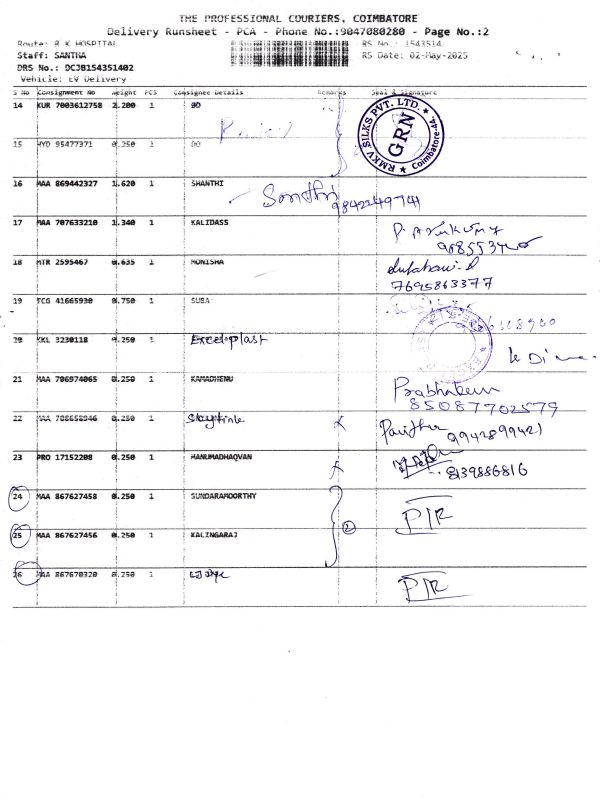 THE PROFESSIONAL COURIERS, COIMBATORE
Delivery Runsheet - PCA - Phone No.:9047080280 - Page No.:2
Route: B K HOSPITAL RS No.: 1543514
Staff: SANTHA RS Date: 02-May-2025
DRS No.: DCJB154351402
Vehicle: EV Delivery
S No Consignment No Weight PCS Consignee Details Remarks Seal & Signature
14 KUR 7003612758 2.200 1 DO
RMKV SILKS PVT. LTD. GRN Coimbatore-44
15 HYD 95477371 0.250 1 DO
16 MAA 869442327 1.620 1 SHANTHI
17 MAA 707633210 1.340 1 KALIDASS
18 MTR 2595467 0.635 1 MONISHA
7695863377
19 TCG 41665930 0.750 1 SUBA
20 KKL 3230118 0.250 1 Excel plast
21 MAA 706974065 0.250 1 KAMADHENU
85087702579
22 MAA 708658946 0.250 1
9942899421
23 PRO 17152208 0.250 1 HANUMADHAQVAN
8139886816
24 MAA 867627458 0.250 1 SUNDARAMOORTHY P/R
25 MAA 867627456 0.250 1 KALINGARAJ 2
26 MAA 867670320 0.250 1 P/R